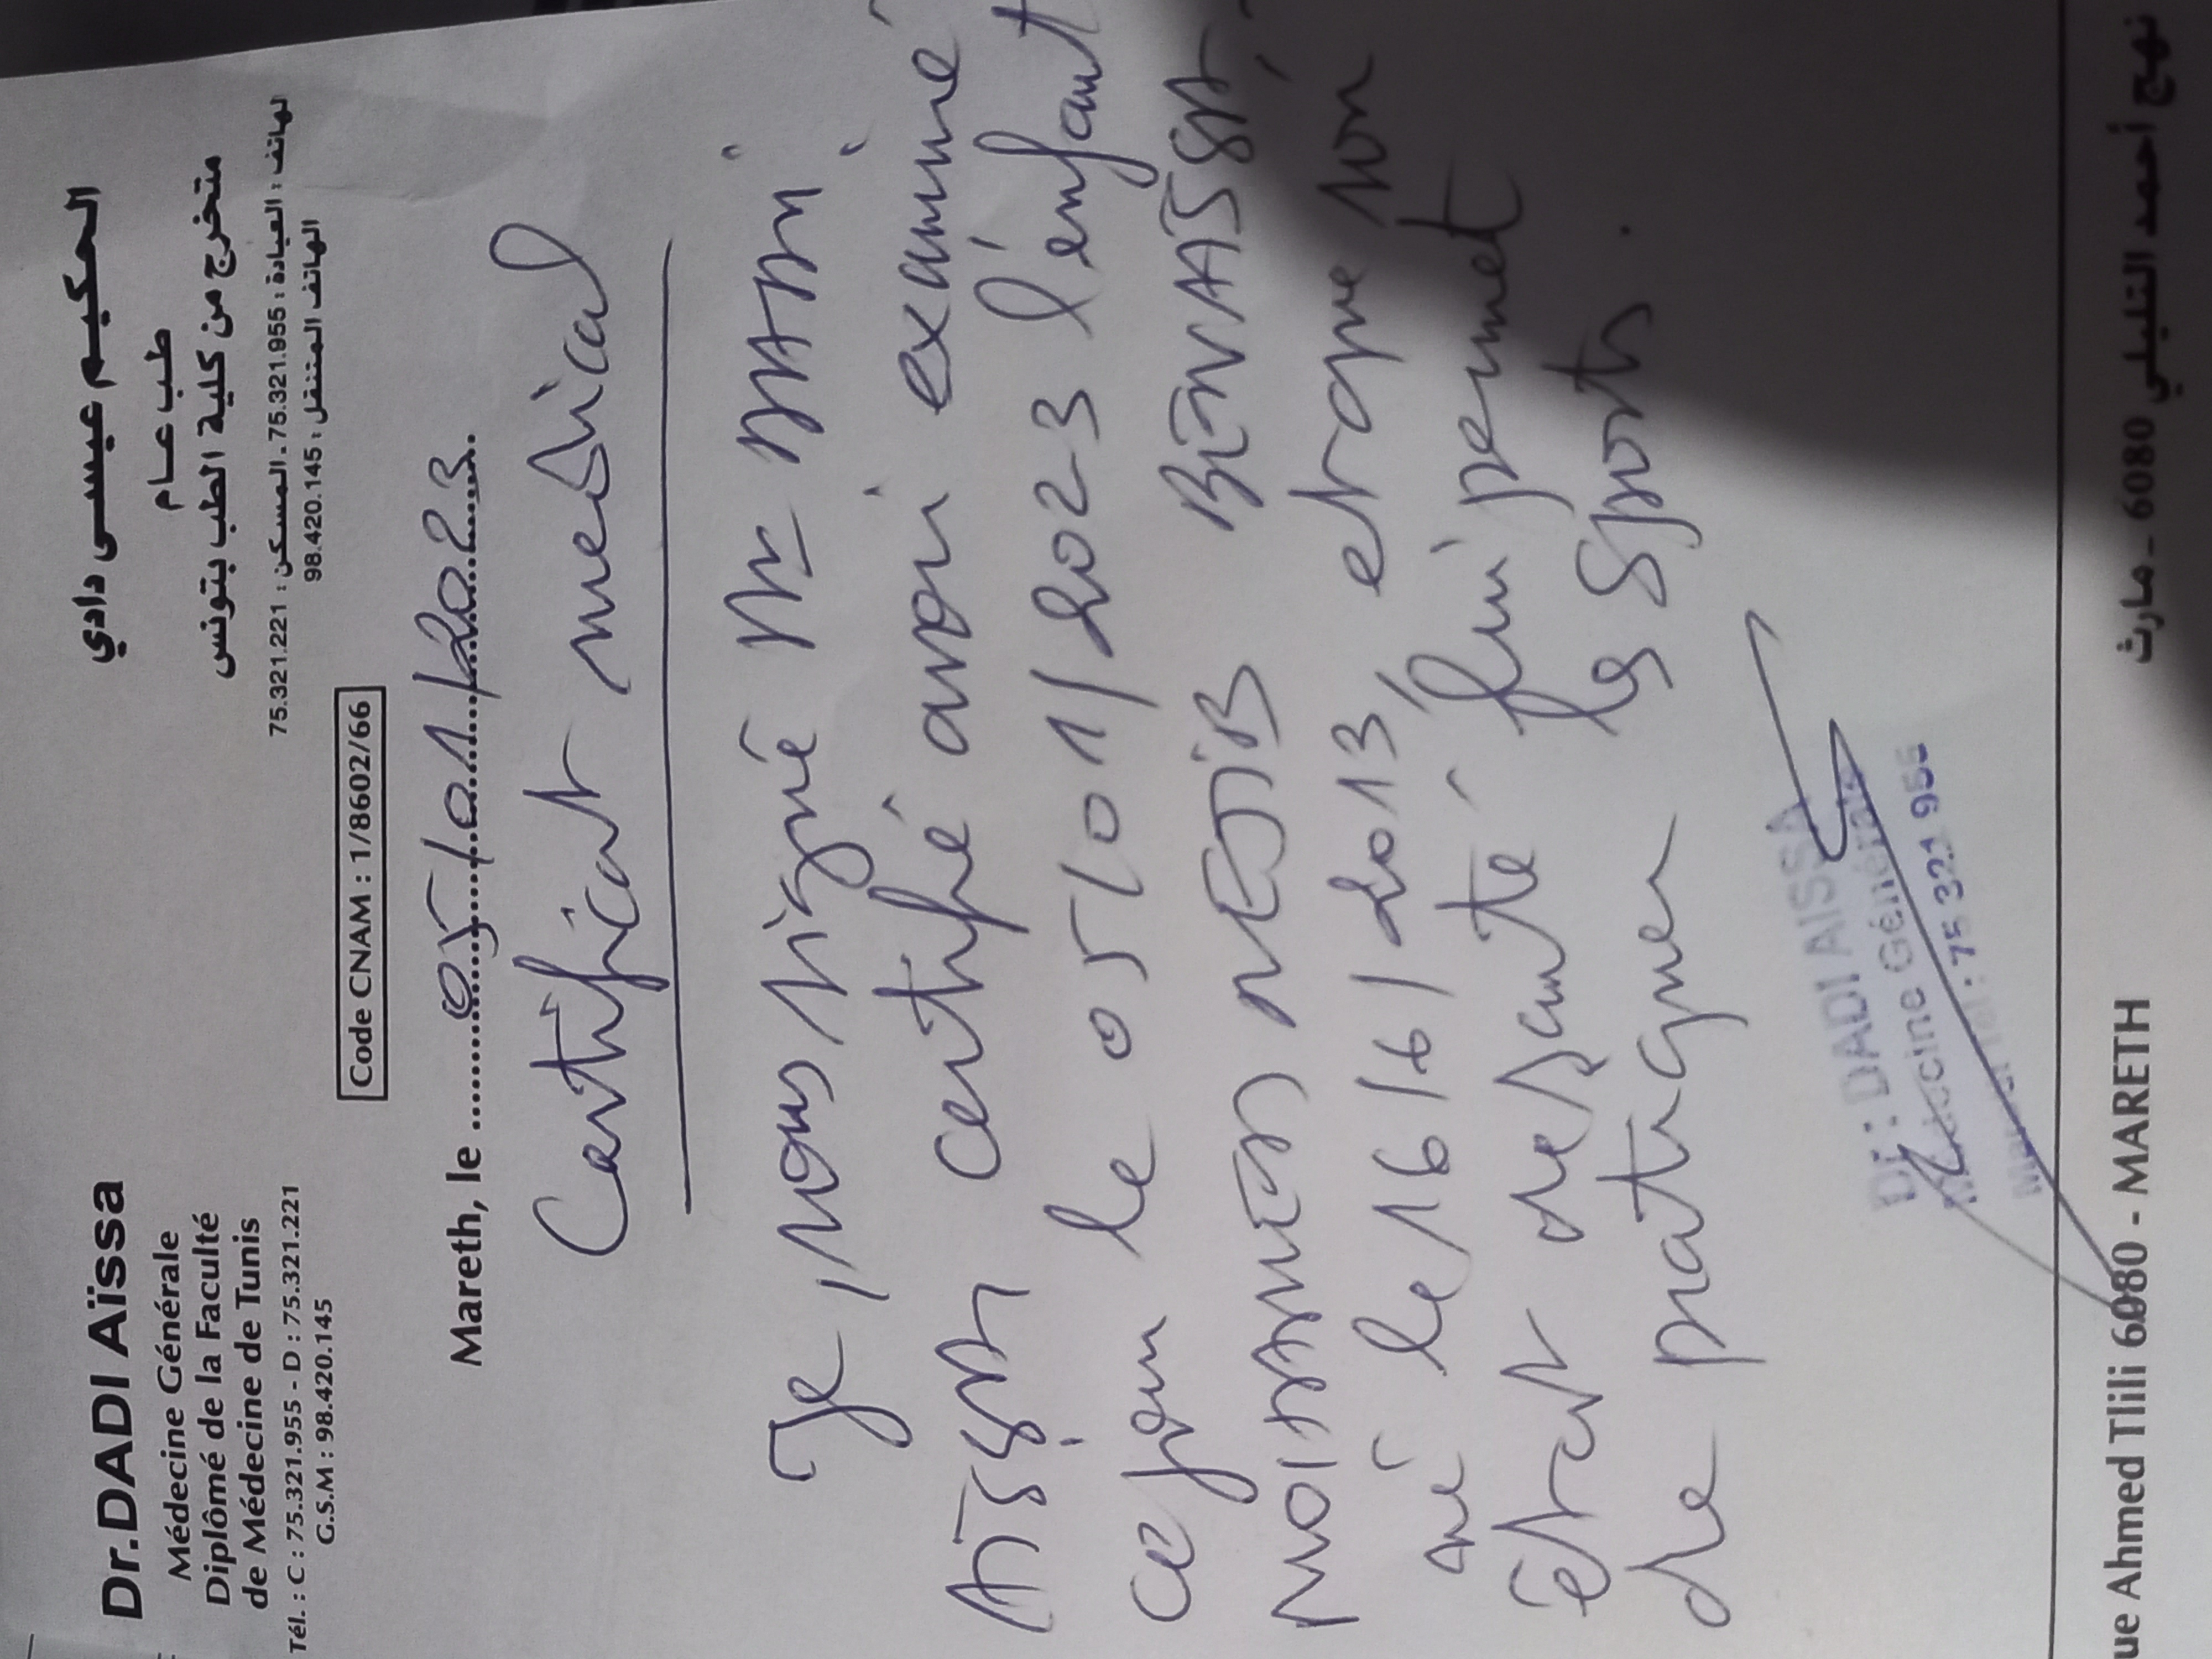 Dr.DADI Aïssa
Médecine Générale
Diplômé de la Faculté
de Médecine de Tunis
Tél. : C : 75.321.955 - D : 75.321.221
G.S.M : 98.420.145
الحكيم عيسى دادي
طب عام
متخرج من كلية الطب بتونس
لهاتف : العيادة : 75.321.955 ـ المسكن : 75.321.221
الهاتف المتنقل : 98.420.145
Code CNAM : 1/8602/66
Mareth, le 05/01/2023
Certificat medical
Je, soussigné Dr DADI
AïSSA certifié avoir examiné
ce jour le 05/01/2023 l'enfant
MOHAMED NEJIB BENAISSA
né le 16/6/2013, et que son
état de santé lui permet
de pratiquer les sports.
Dr : DADI AISSA
Médecine Générale
Mareth Tél : 75 321 955
ue Ahmed Tlili 6080 - MARETH
نهج أحمد التليلي 6080 ـ مارث